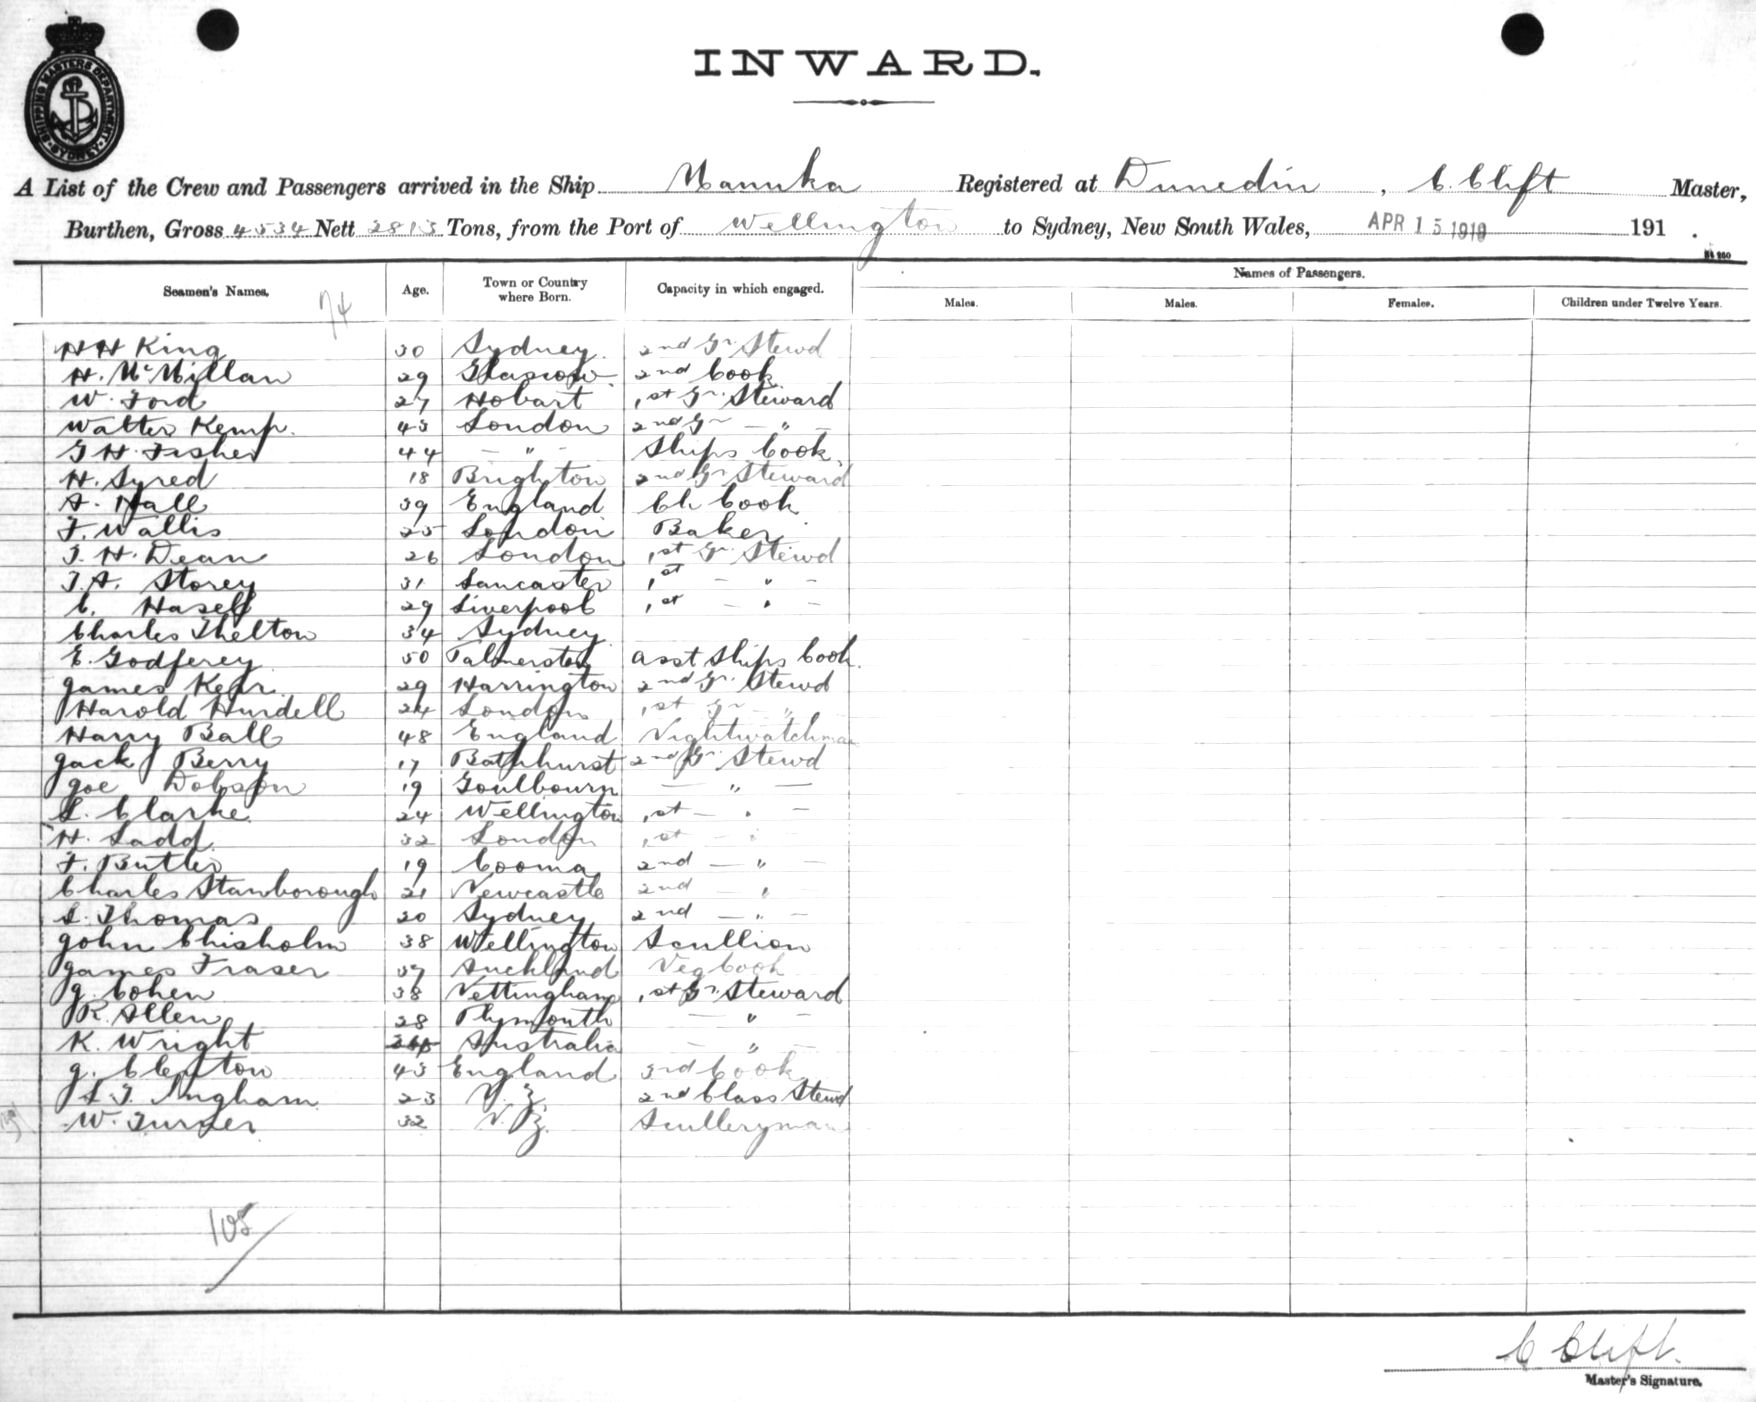 SHIPPING MASTERS DEPARTMENT SYDNEY
INWARD.
A List of the Crew and Passengers arrived in the Ship Manuka Registered at Dunedin, C. Clift Master,
Burthen, Gross 4534 Nett 2813 Tons, from the Port of Wellington to Sydney, New South Wales, APR 15 1910 191 .
Names of Passengers.
Seamen's Names. Age. Town or Country where Born. Capacity in which engaged. Males. Males. Females. Children under Twelve Years.
74
H H King 30 Sydney. 2nd Gr. Stewd
H. McMillan 29 Glascow. 2nd Cook
W. Ford 27 Hobart 1st Gr. Steward
Walter Kemp. 43 London 2nd Gr - " -
G H. Fisher 44 - " - Ships Cook.
H. Syred 18 Brighton 2nd Gr Steward
A. Hall 39 England Ch Cook
F. Wallis 25 London Baker
J. H. Dean 26 London 1st Gr. Stewd
J. A. Storey 31 Lancaster 1st - " -
C. Hasell 29 Liverpool 1st - " -
Charles Shelton 34 Sydney
E. Godferey 50 Palmerston asst Ships Cook.
James Kerr. 29 Harrington 2nd Gr. Stewd
Harold Hurdell 24 London 1st Gr "
Harry Ball 48 England Nightwatchman
Jack Berry 17 Bathhurst 2nd Gr. Stewd
Joe Dobson 19 Goulbourn — " —
L. Clarke. 24 Wellington 1st - " -
H. Ladd. 32 London 1st - "
F. Butler 19 Cooma 2nd - " -
Charles Stanborough 21 Newcastle 2nd - "
L. Thomas 20 Sydney 2nd - " -
John Chisholm 38 Wellington Scullion
James Fraser 37 Auckland Veg Cook
J. Cohen 38 Nottingham 1st Gr. Steward
R. Allen 28 Plymouth — " —
K. Wright Australia — " —
J. Clepton 43 England 3rd Cook
L J. Ingham 23 N.Z. 2nd Class Stewd
W. Turner. 32 N.Z. Sculleryman
105
C Clift.
Master's Signature.